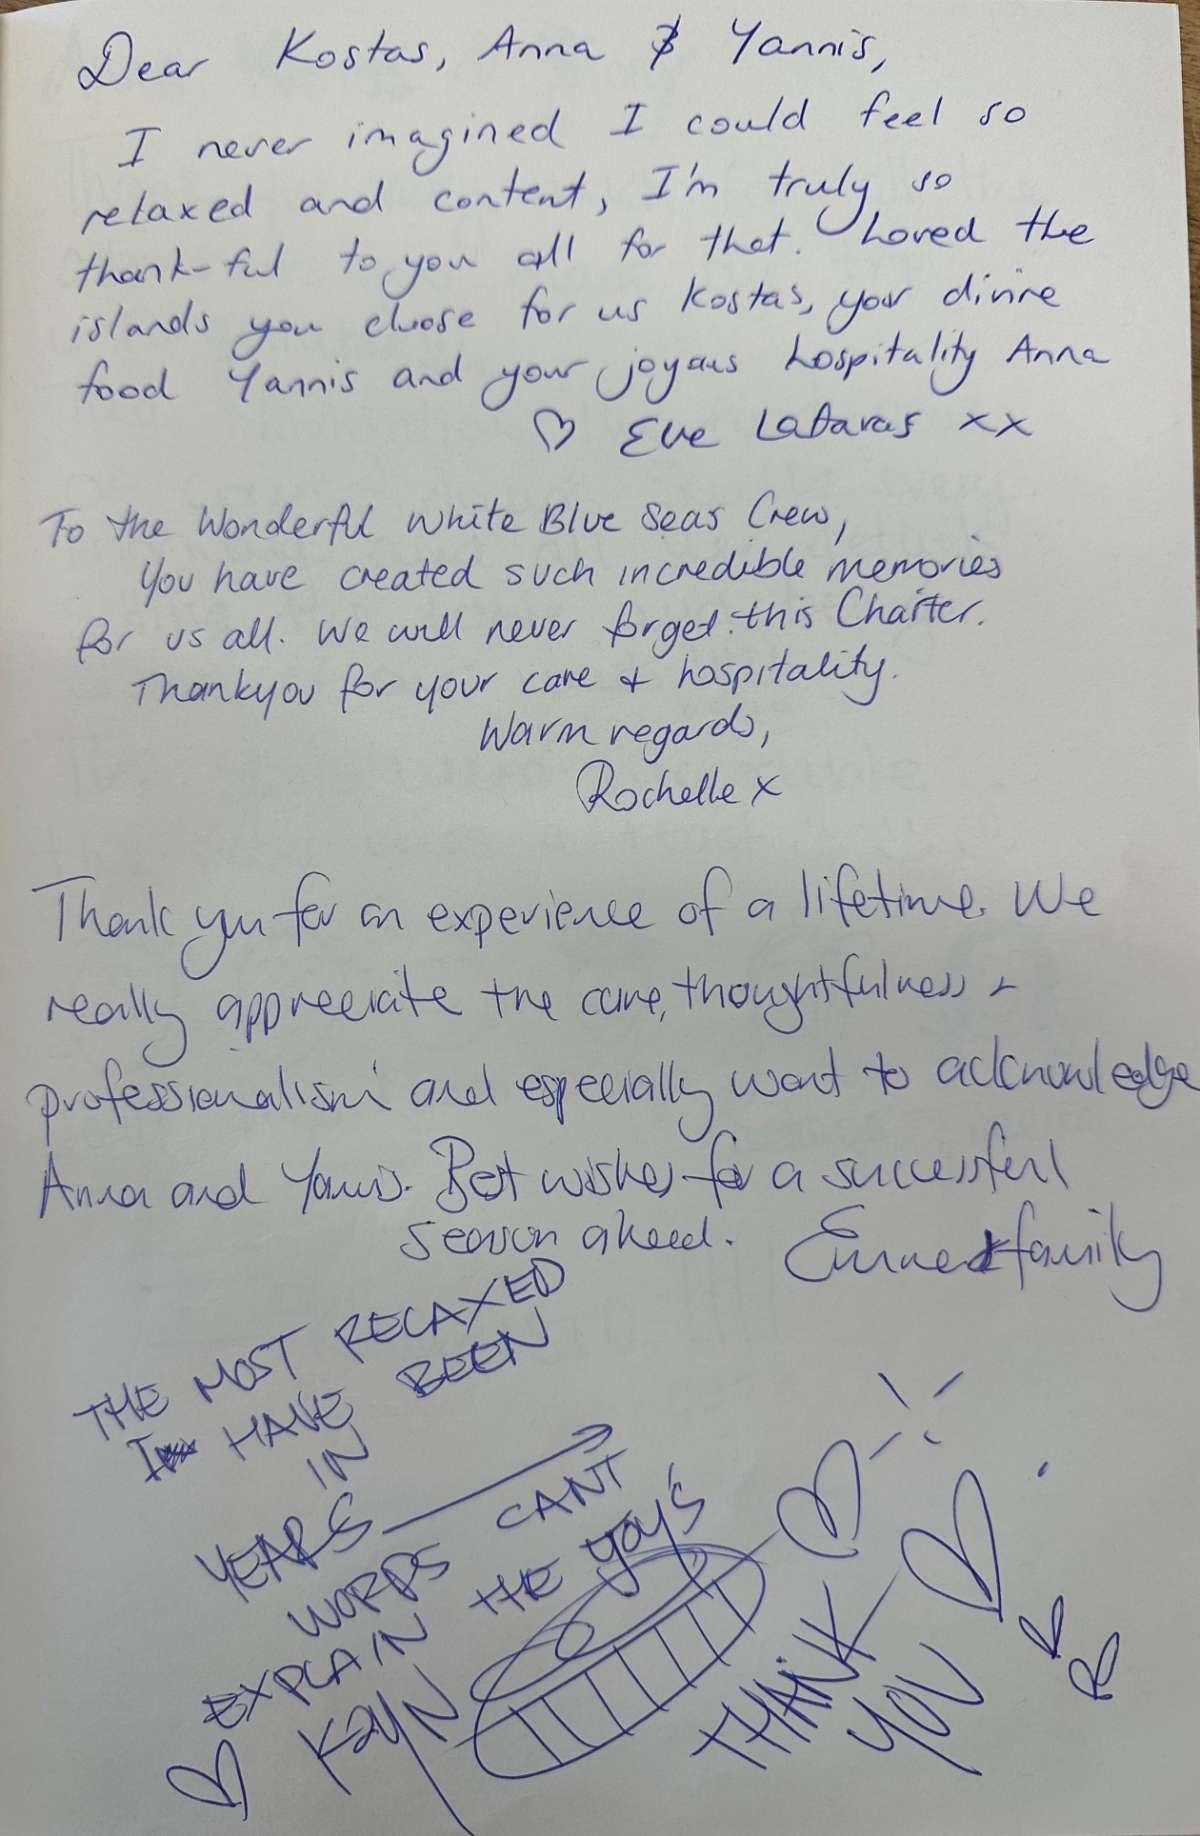 Dear Kostas, Anna & Yannis,
I never imagined I could feel so
relaxed and content, I'm truly so
thank-ful to you all for that. Loved the
islands you chose for us Kostas, your divine
food Yannis and your joyous hospitality Anna
♡ Eve xx
To the Wonderful White Blue Seas Crew,
You have created such incredible memories
for us all. We will never forget this Charter.
Thankyou for your care + hospitality.
Warm regards,
Rochelle x
Thank you for an experience of a lifetime. We
really appreciate the care, thoughtfulness +
professionalism and especially want to acknowledge
Anna and Yannis. Best wishes for a successful
season ahead.
& family
THE MOST RELAXED
I HAVE BEEN
IN
YEARS
WORDS CANT
EXPLAIN THE JOYS
KayN
THANK
YOU